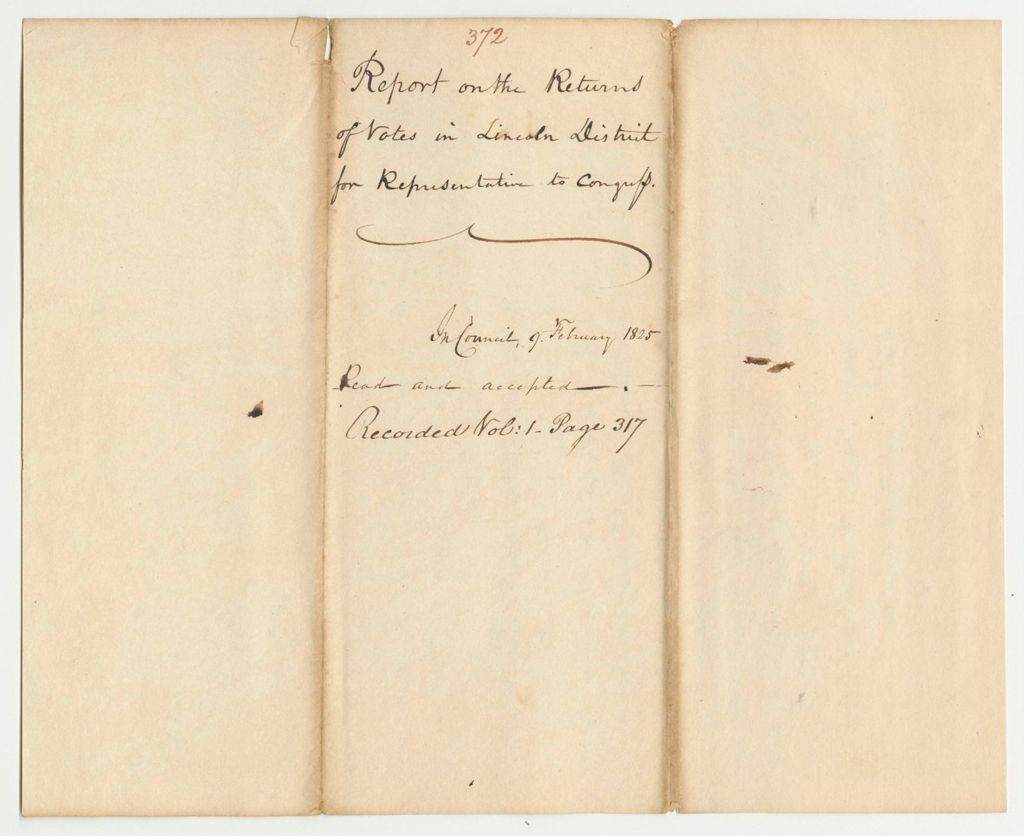 372
Report on the Returns
of Votes in Lincoln District
for Representative to Congress.
In Council, 9. February, 1825
Read and accepted —. —
Recorded Vol: 1 - Page 317